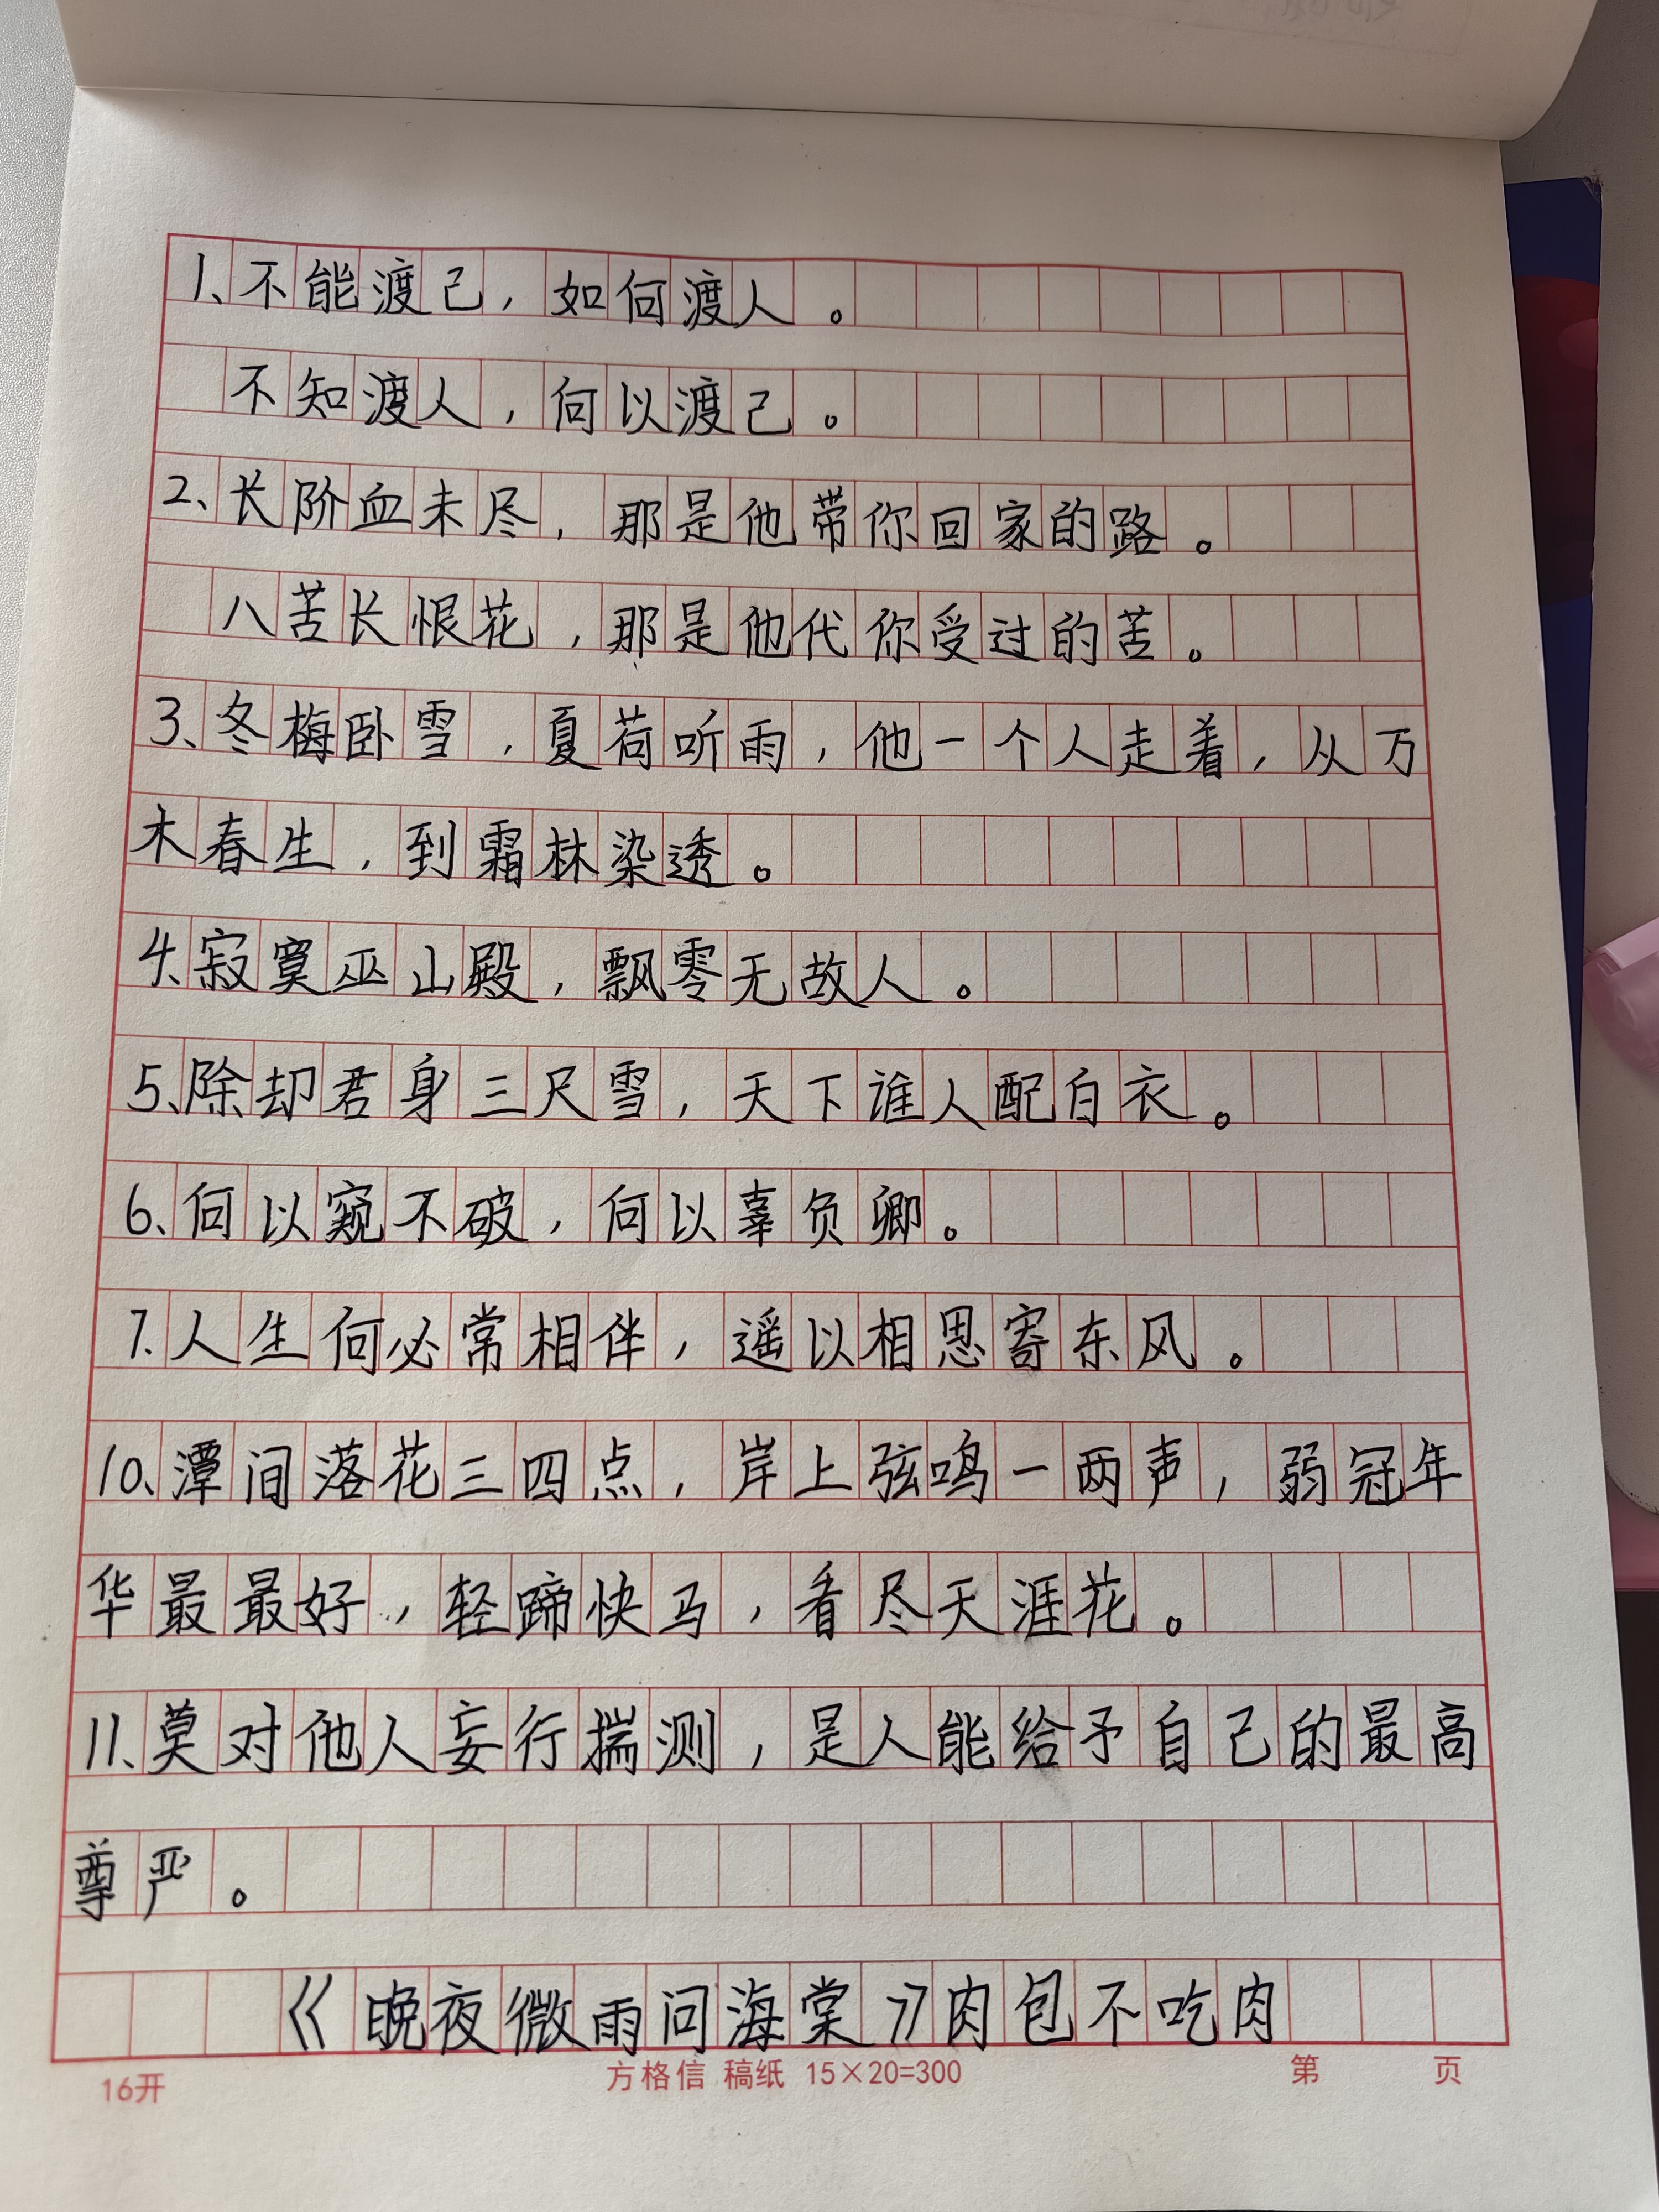 1、不能渡己，如何渡人。
不知渡人，何以渡己。
2、长阶血未尽，那是他带你回家的路。
八苦长恨花，那是他代你受过的苦。
3、冬梅卧雪，夏荷听雨，他一个人走着，从万
木春生，到霜林染透。
4、寂寞巫山殿，飘零无故人。
5、除却君身三尺雪，天下谁人配白衣。
6、何以窥不破，何以辜负卿。
7.人生何必常相伴，遥以相思寄东风。
10、潭间落花三四点，岸上弦鸣一两声，弱冠年
华最最好，轻蹄快马，看尽天涯花。
11、莫对他人妄行揣测，是人能给予自己的最高
尊严。
《晚夜微雨问海棠》肉包不吃肉
16开 方格信 稿纸 15×20=300 第 页